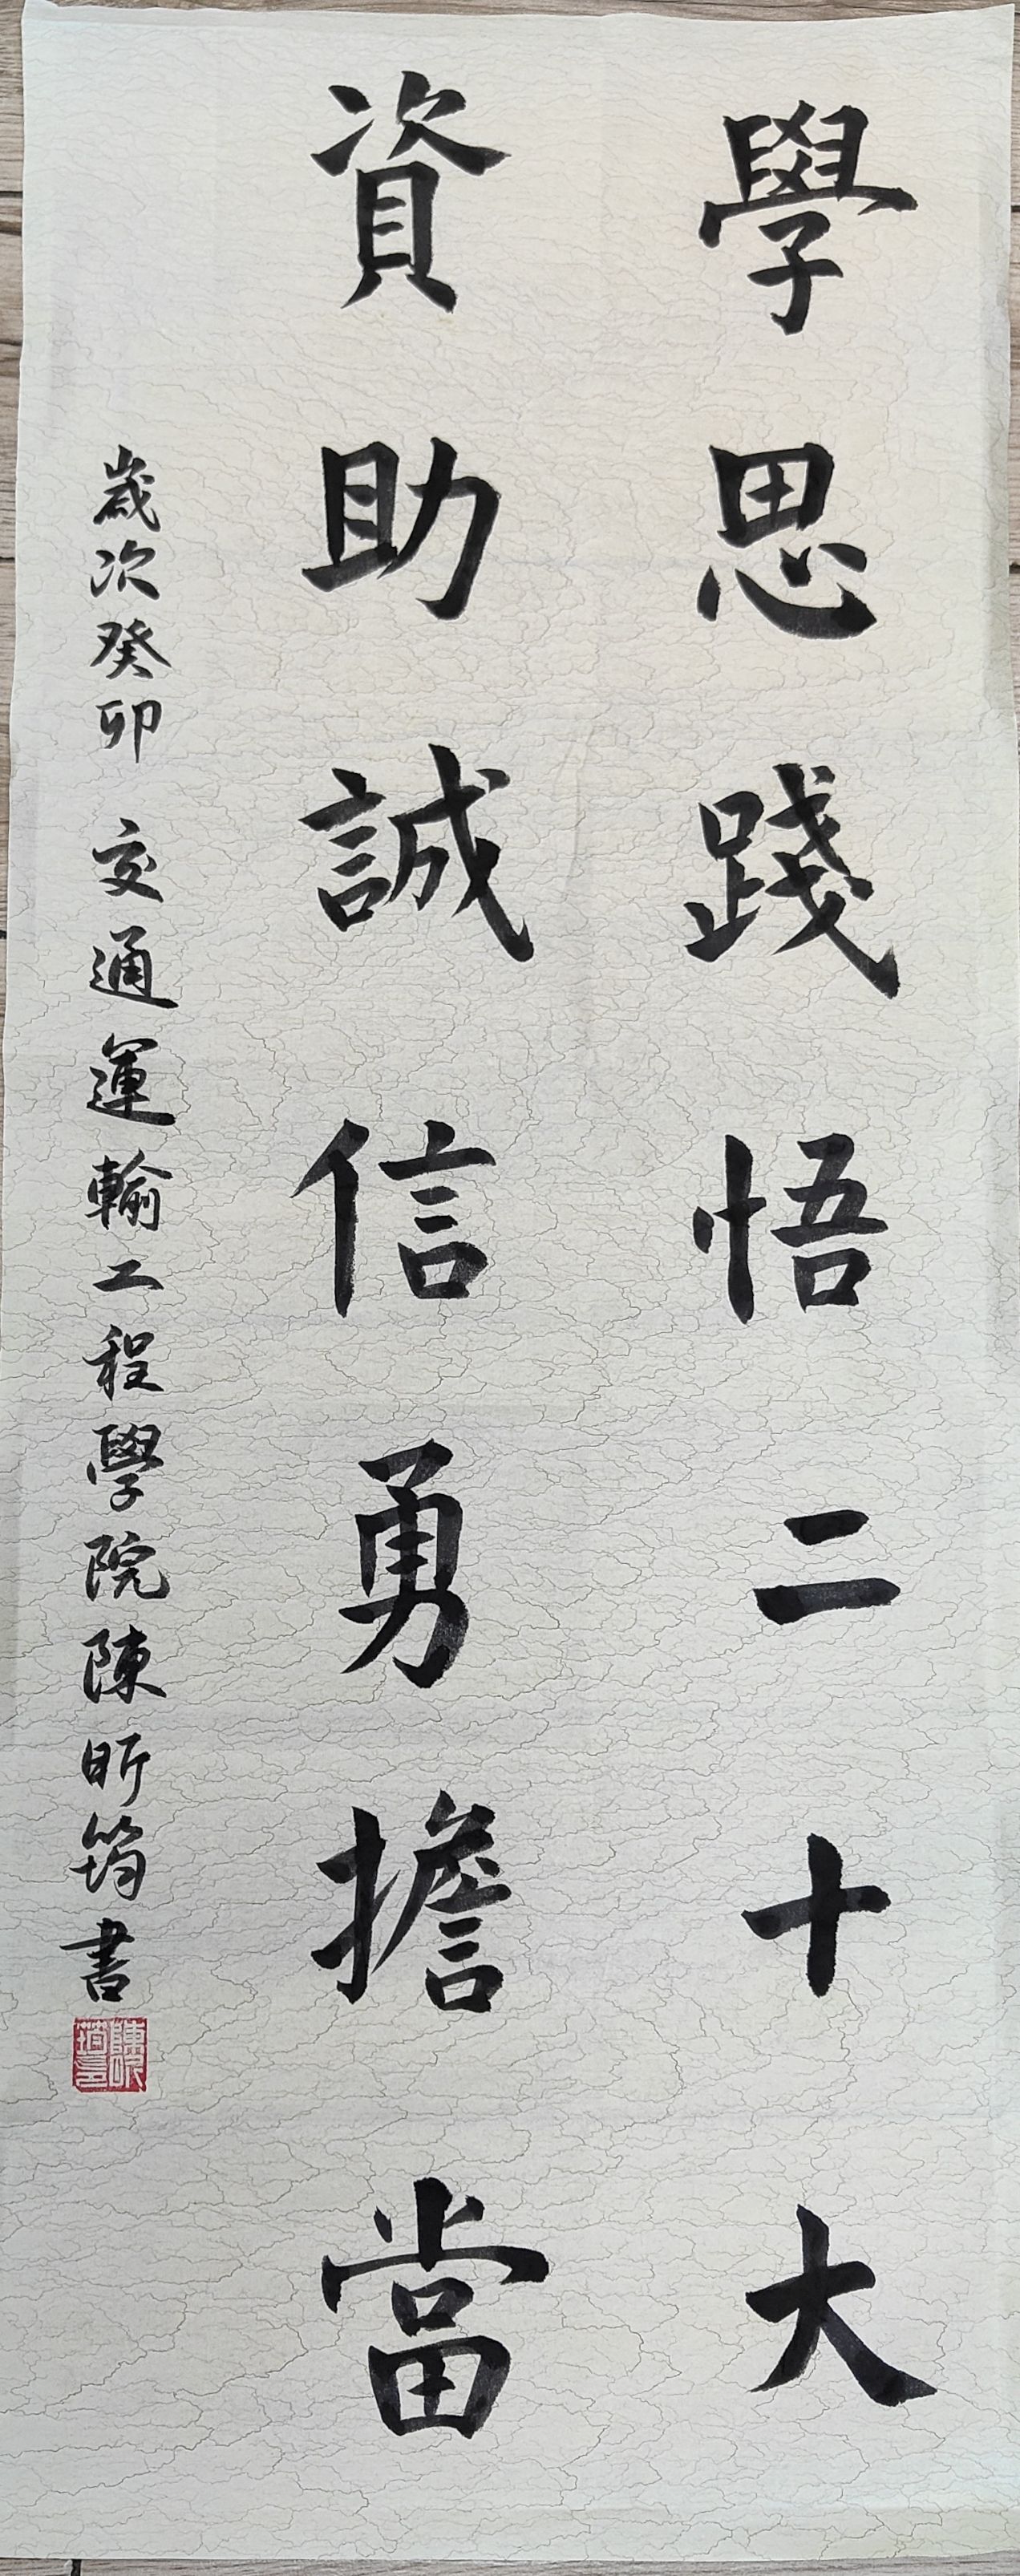 學思踐悟二十大
資助誠信勇擔當
歲次癸卯 交通運輸工程學院陳昕筠書